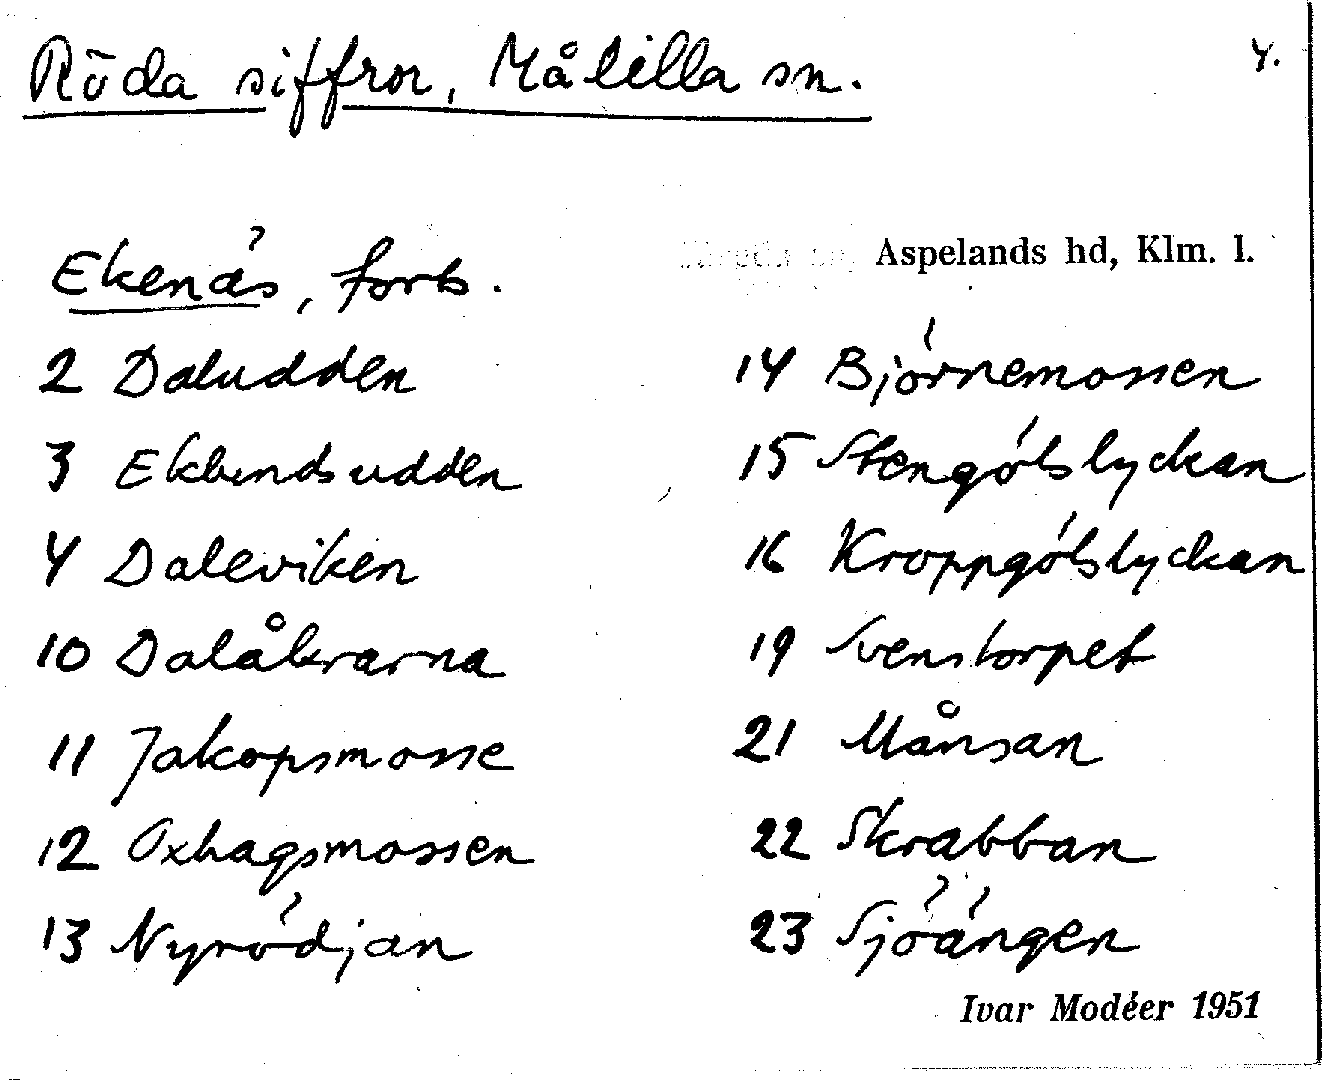 Röda siffror, Målilla sn.
4.
Aspelands hd, Klm. l.
Ekenäs, forts.
2 Daludden
3 Eklundsudden
4 Daleviken
10 Dalåkrarna
11 Jakopsmosse
12 Oxhagsmossen
13 Nyrödjan
14 Björnemossen
15 Stengölslyckan
16 Kroppgölslyckan
19 Svenstorpet
21 Månsan
22 Skrabban
23 Sjöängen
Ivar Modéer 1951